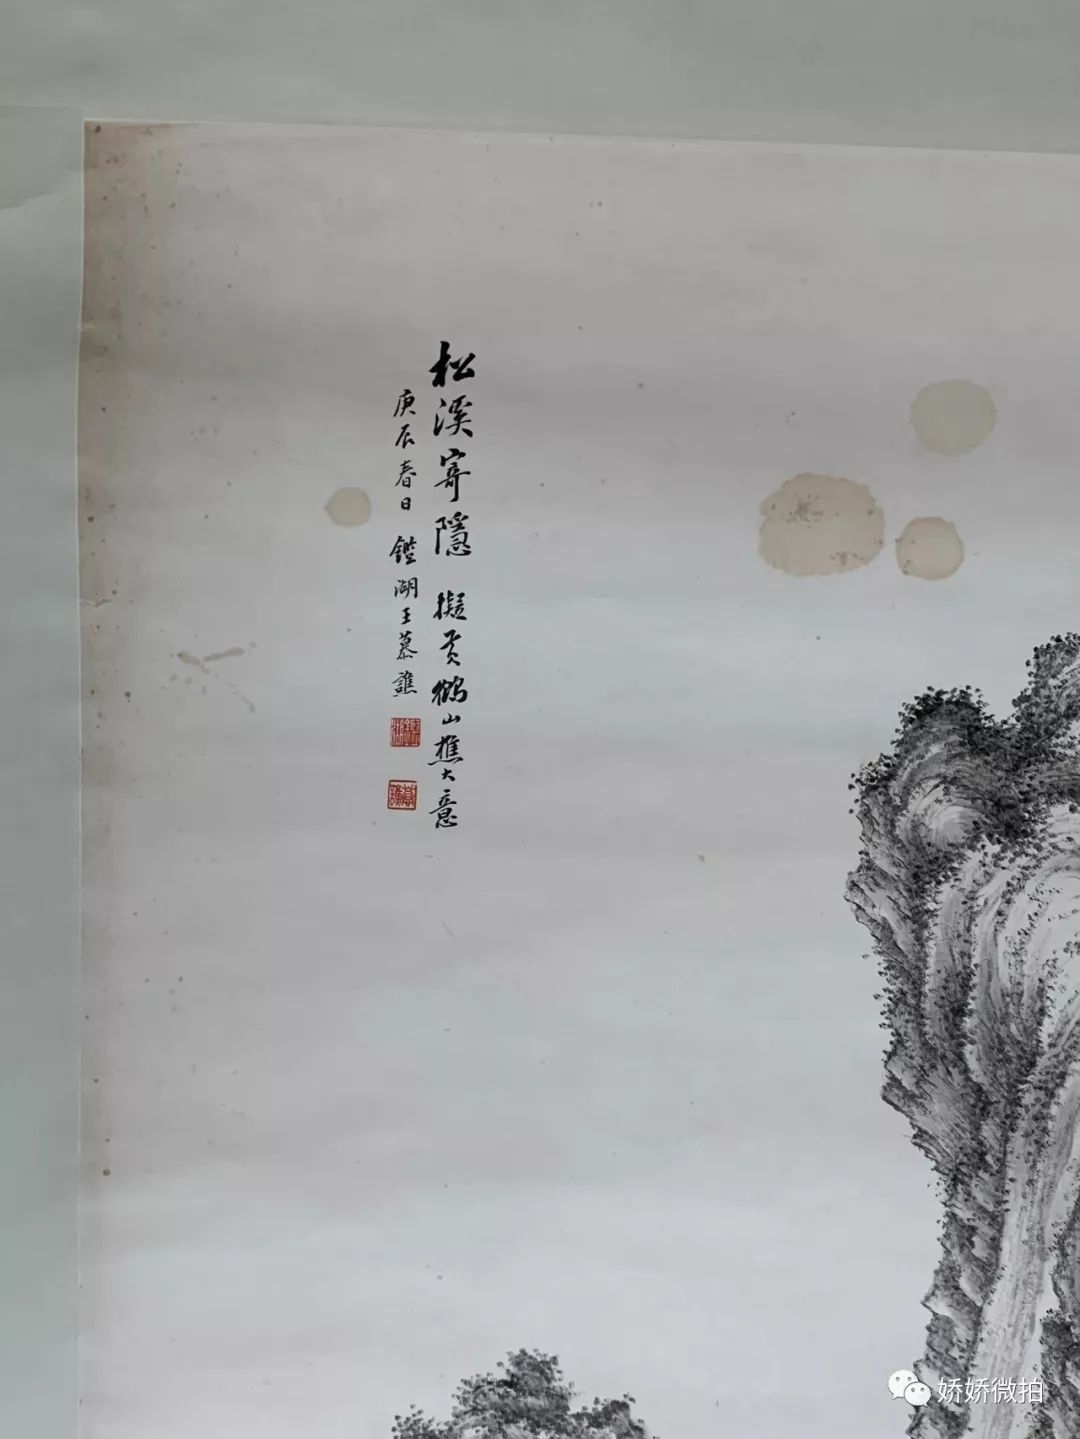 松溪寄隱 擬黃鶴山樵大意
庚辰春日 鑑湖王慕譙
娇娇微拍